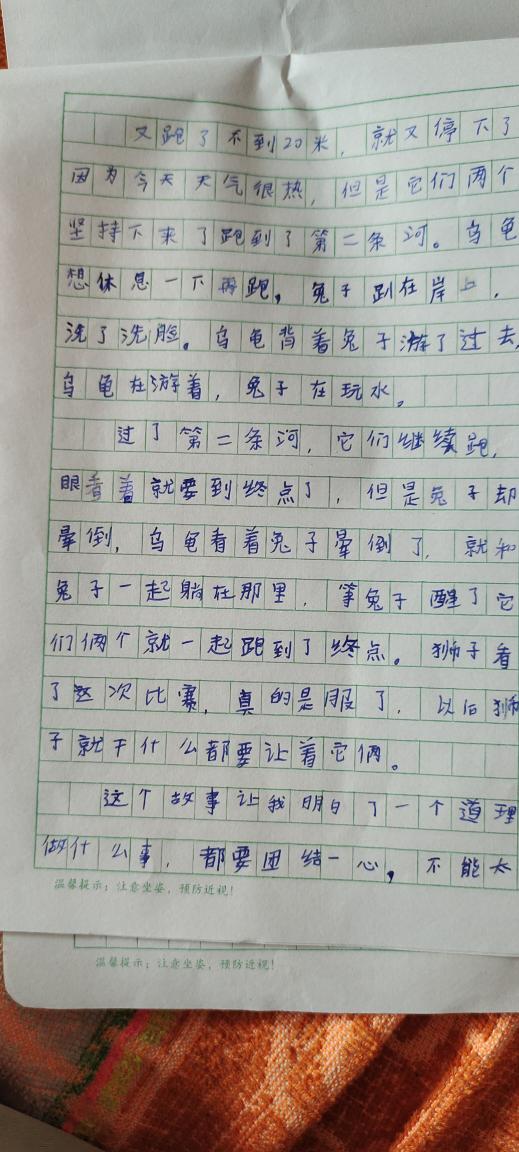 又跑了不到20米，就又停下了
因为今天天气很热，但是它们两个
坚持下来了跑到了第二条河。乌龟
想休息一下再跑，兔子趴在岸上，
洗了洗脸。乌龟背着兔子游了过去，
乌龟在游着，兔子在玩水。
过了第二条河，它们继续跑，
眼看着就要到终点了，但是兔子却
晕倒，乌龟看着兔子晕倒了，就和
兔子一起躺在那里，等兔子醒了它
们俩个就一起跑到了终点。狮子看
了这次比赛，真的是服了，以后狮
子就干什么都要让着它俩。
这个故事让我明白了一个道理
做什么事，都要团结一心，不能太
温馨提示：注意坐姿，预防近视！
温馨提示：注意坐姿，预防近视！